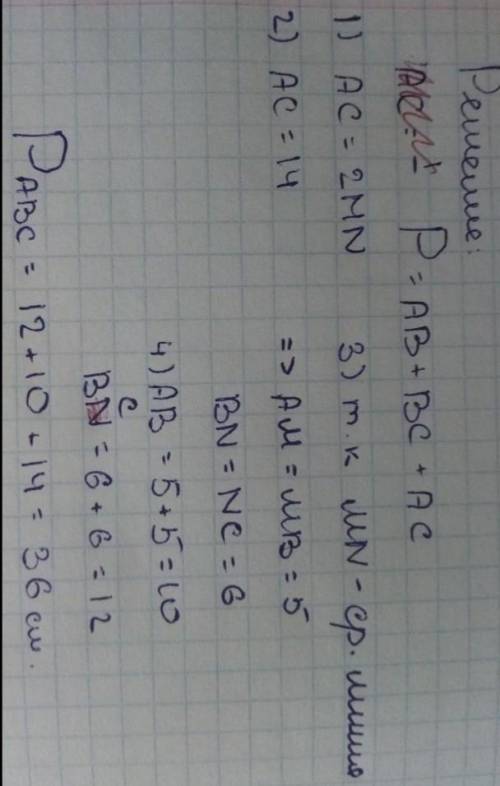 Решение:
P = AB + BC + AC
1) AC = 2MN
2) AC = 14
3) т.к MN - ср. линия
=> AM = MB = 5
BN = NC = 6
4) AB = 5 + 5 = 10
BC = 6 + 6 = 12
P ABC = 12 + 10 + 14 = 36 см.